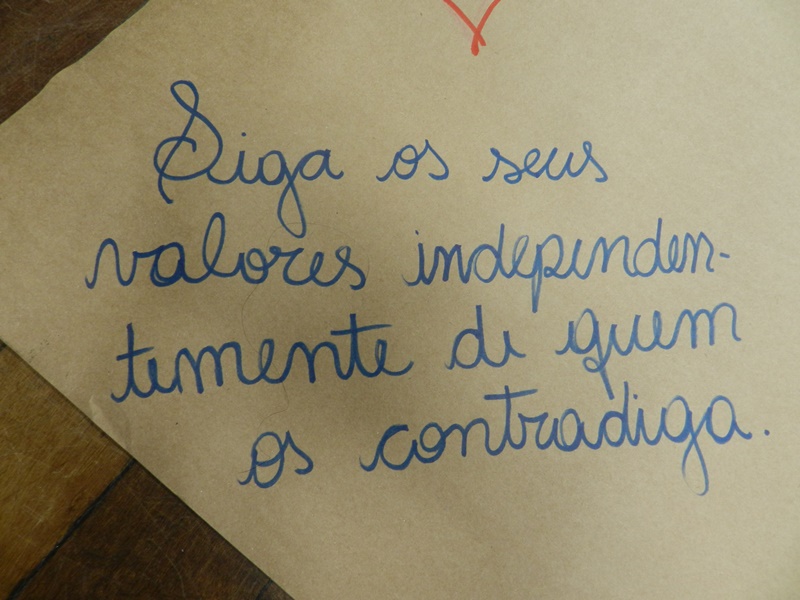 Siga os seus
valores independen-
temente de quem
os contradiga.